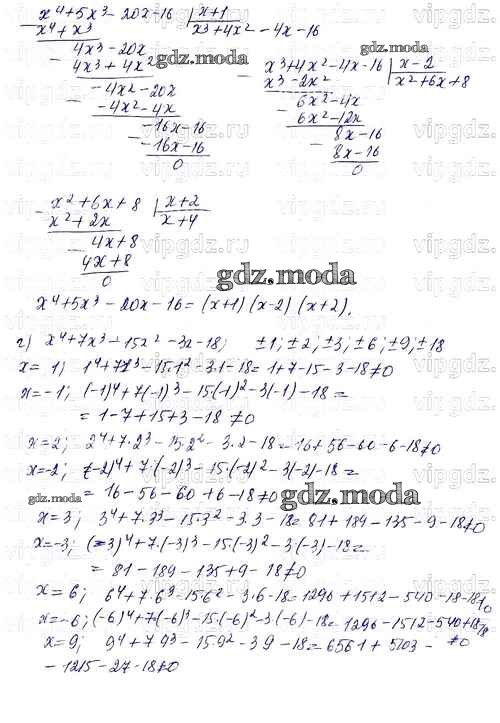 x⁴+5x³-20x-16 | x+1
x⁴+x³ x³+4x²-4x-16
4x³-20x
4x³+4x²
-4x²-20x
-4x²-4x
-16x-16
-16x-16
0
x³+4x²-4x-16 | x-2
x³-2x² x²+6x+8
6x²-4x
6x²-12x
8x-16
8x-16
0
x²+6x+8 | x+2
x²+2x x+4
4x+8
4x+8
0
gdz.moda
x⁴+5x³-20x-16=(x+1)(x-2)(x+2).
г) x⁴+7x³-15x²-3x-18; ±1; ±2; ±3; ±6; ±9; ±18
x=1; 1⁴+7·1³-15·1²-3·1-18=1+7-15-3-18≠0
x=-1; (-1)⁴+7(-1)³-15(-1)²-3(-1)-18=
=1-7+15+3-18≠0
x=2; 2⁴+7·2³-15·2²-3·2-18=16+56-60-6-18≠0
x=-2; (-2)⁴+7·(-2)³-15·(-2)²-3(-2)-18=
=16-56-60+6-18≠0
gdz.moda
gdz.moda
x=3; 3⁴+7·3³-15·3²-3·3-18=81+189-135-9-18≠0
x=-3; (-3)⁴+7·(-3)³-15·(-3)²-3(-3)-18=
=81-189-135+9-18≠0
x=6; 6⁴+7·6³-15·6²-3·6-18=1296+1512-540-18-18≠0
x=-6; (-6)⁴+7(-6)³-15·(-6)²-3(-6)-18=1296-1512-540+18-18
≠0
x=9; 9⁴+7·9³-15·9²-3·9-18=6561+5103-
-1215-27-18≠0